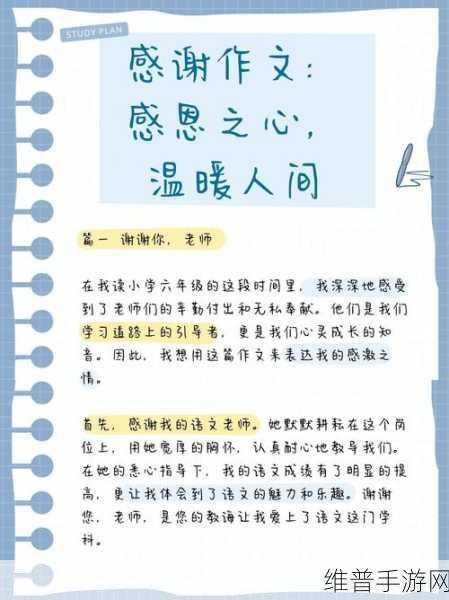 STUDY PLAN
感谢作文：
感恩之心，
温暖人间
篇一 谢谢你，老师
在我读小学六年级的这段时间里，我深深地感受
到了老师们的辛勤付出和无私奉献。他们是我们
学习道路上的引导者，更是我们心灵成长的知
音。因此，我想用这篇作文来表达我的感激之
情。
首先，感谢我的语文老师。她默默耕耘在这个岗
位上，用她宽厚的胸怀，认真耐心地教导我们。
在她的悉心指导下，我的语文成绩有了明显的提
高，更让我体会到了语文的魅力和乐趣。谢谢
您，老师，是您的教诲让我爱上了语文这门学
科。
维普手游网